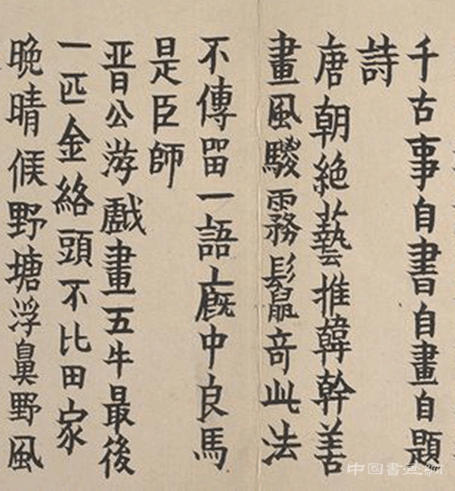 千古事自書自畫自題
詩
唐朝絕藝推韓幹善
畫風駿霧鬛奇此法
不傳留一語廐中良馬
是臣師
晋公游戲畫五牛最後
一匹金絡頭不比田家
晚晴候野塘浮鼻野風
中国書画網